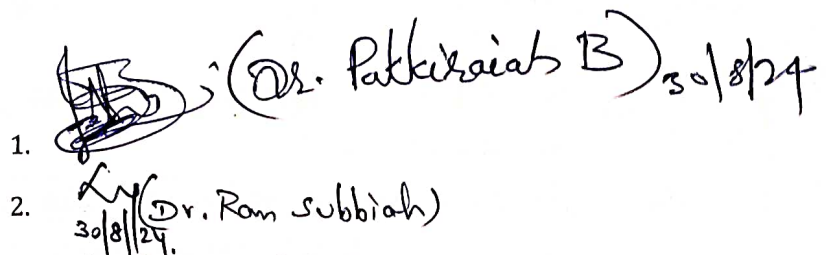 1. (Dr. Pakkiraiah B) 30/8/24
2. (Dr. Ram Subbiah)
30/8/24.